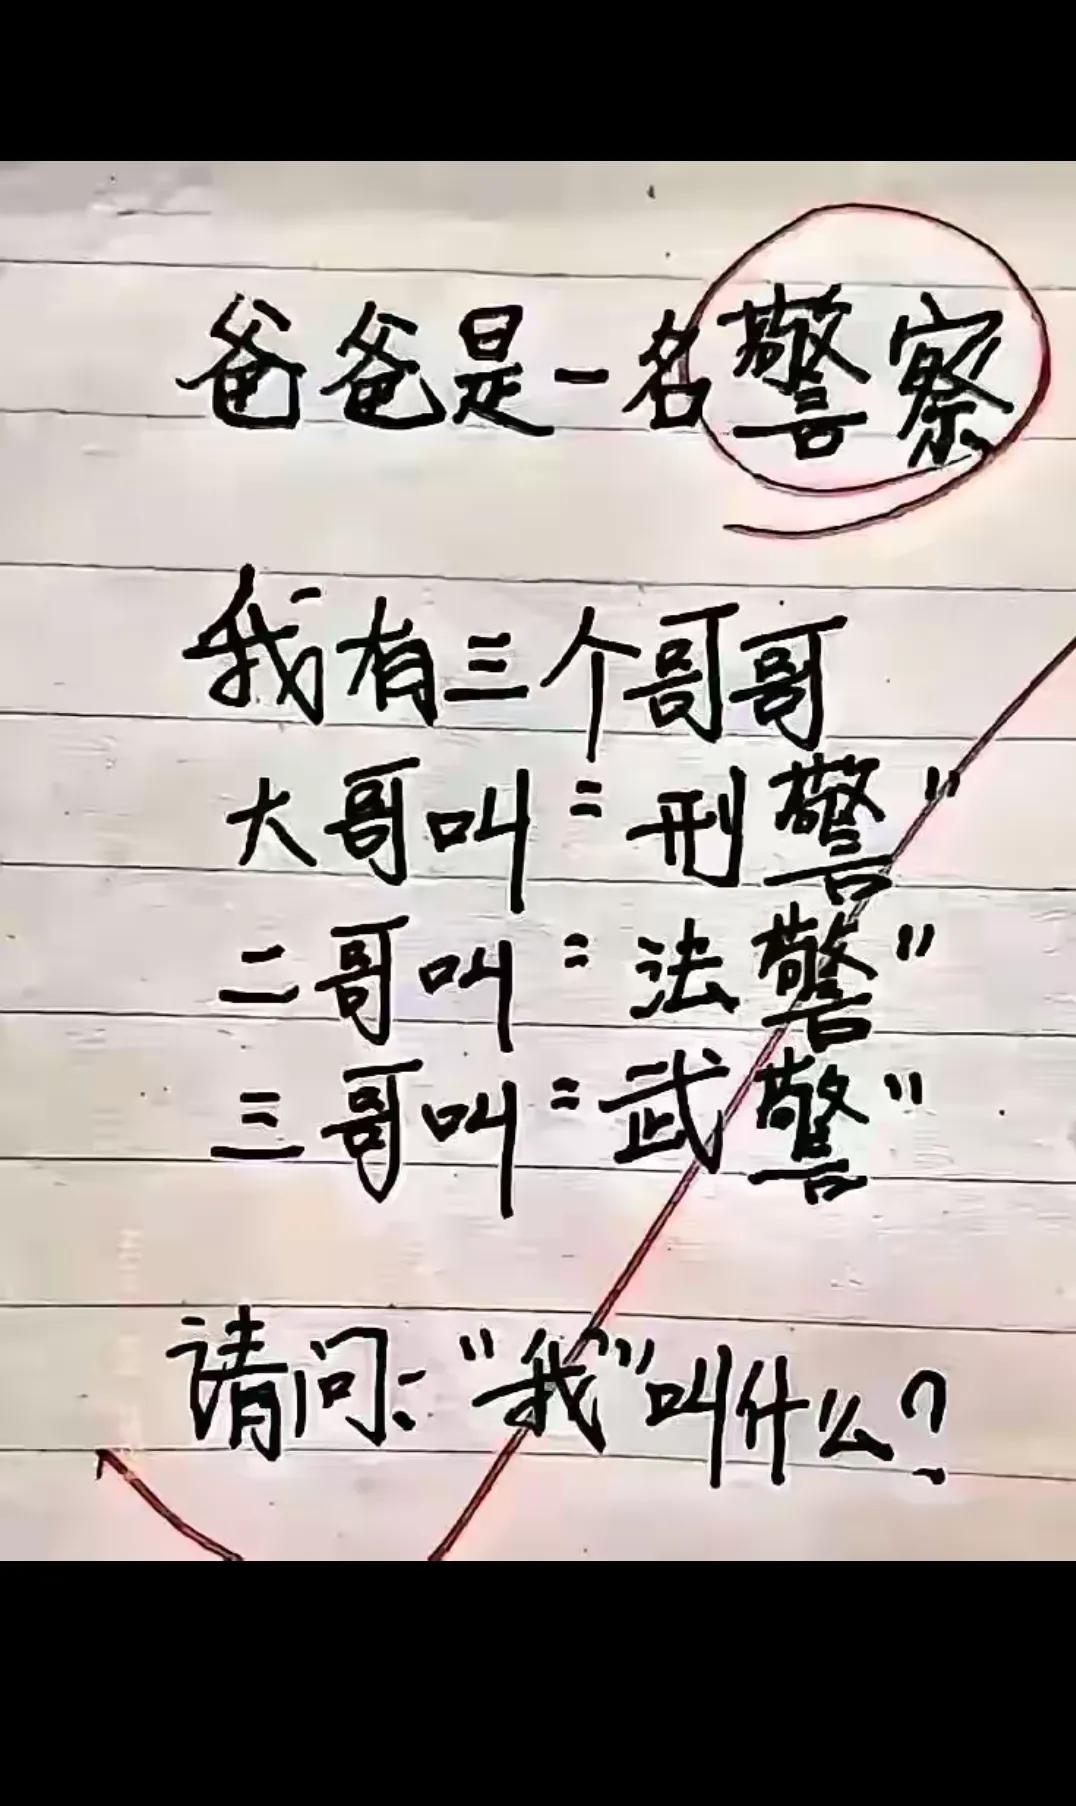 爸爸是一名警察
我有三个哥哥
大哥叫“刑警”
二哥叫“法警”
三哥叫“武警”
请问:“我”叫什么?